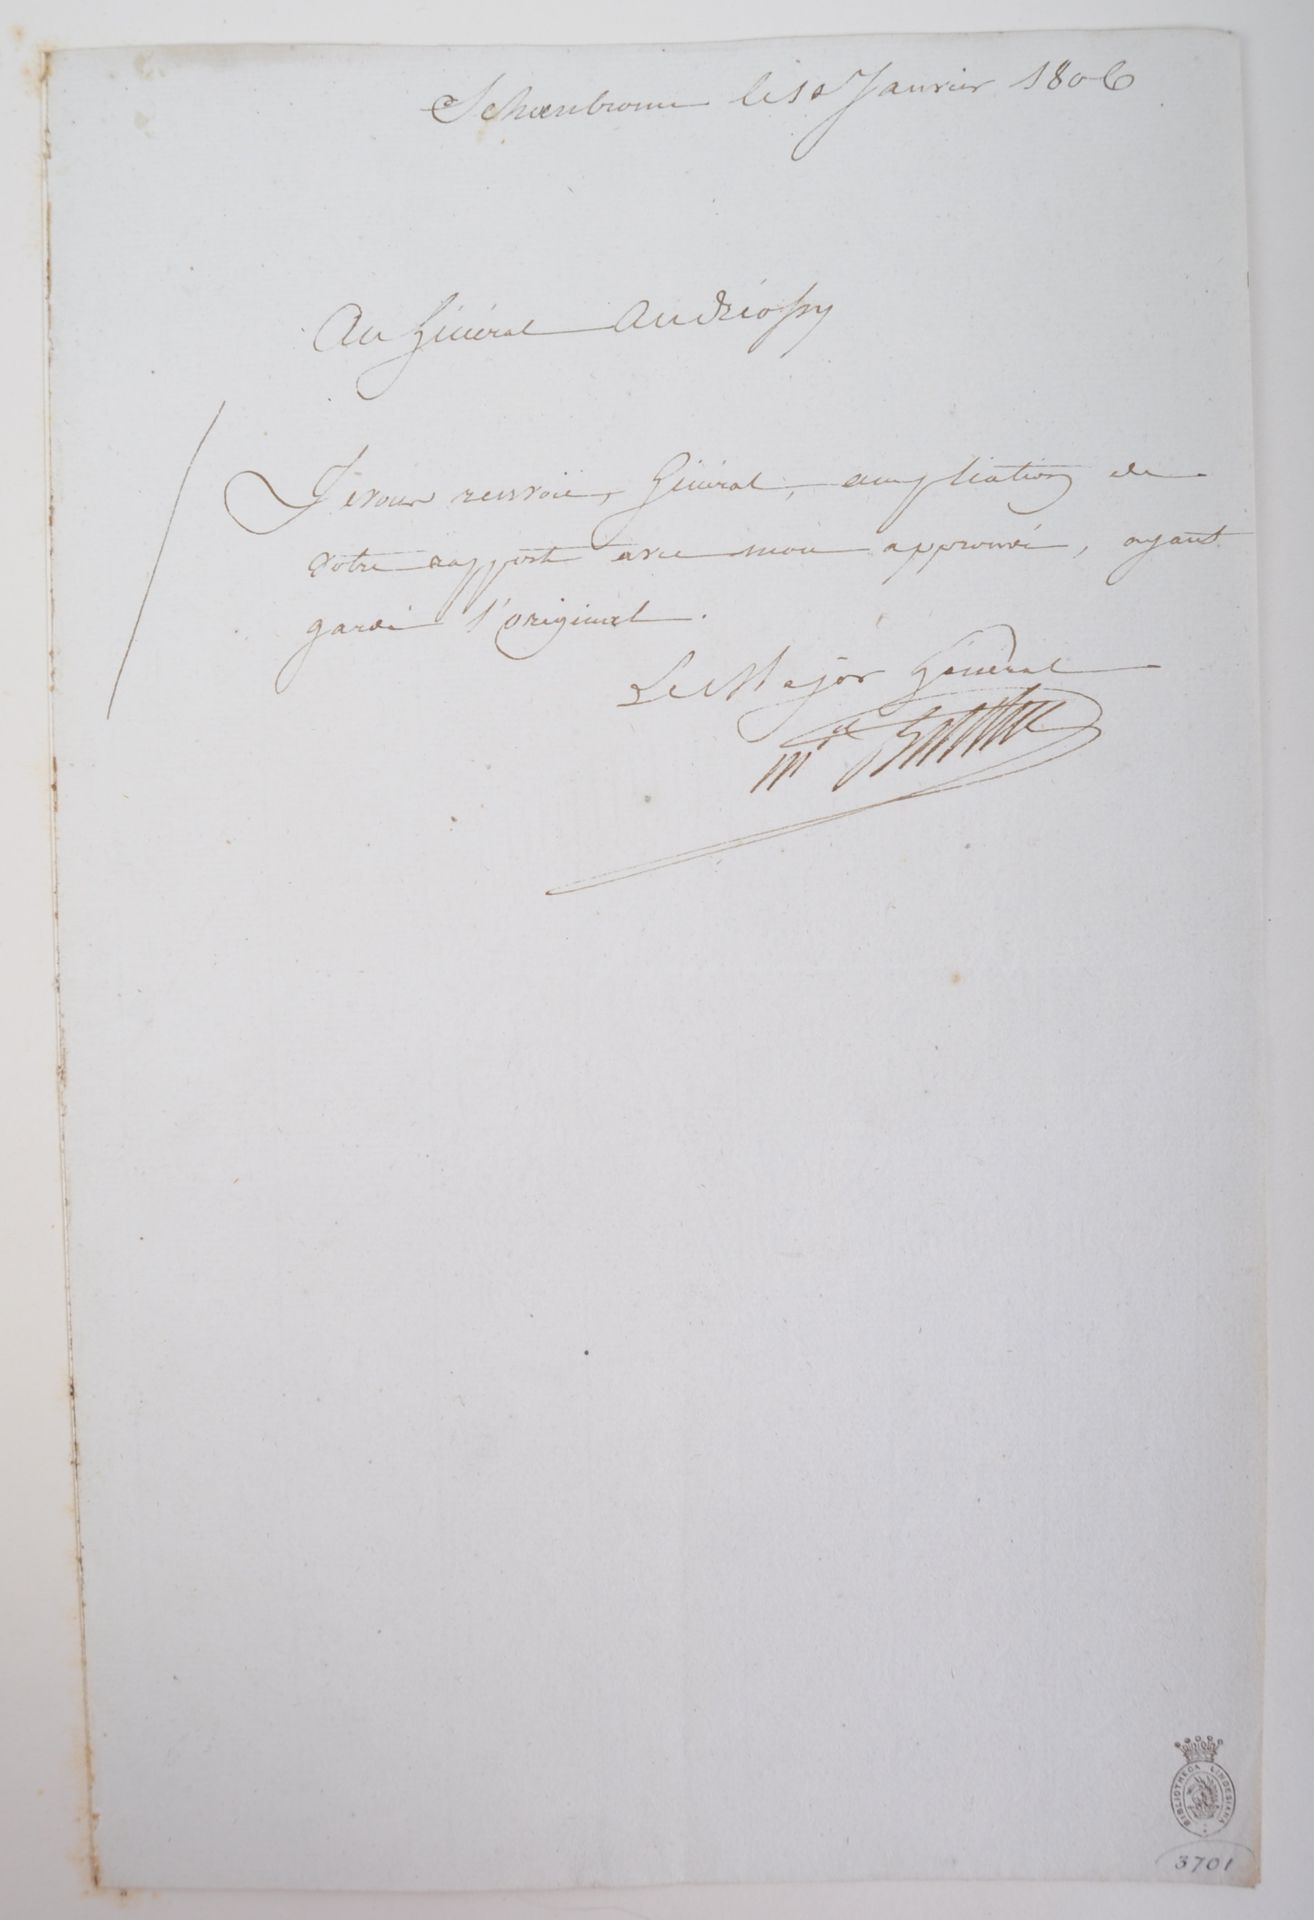 Schœnbrunn le 10 Janvier 1806
Au Général Andréossy
Je vous renvoie, Général, ampliation de
votre rapport avec mon approuvé, ayant
gardé l'original.
Le Major Général
Mal Berthier
BIBLIOTHECA LINDESIANA
3701